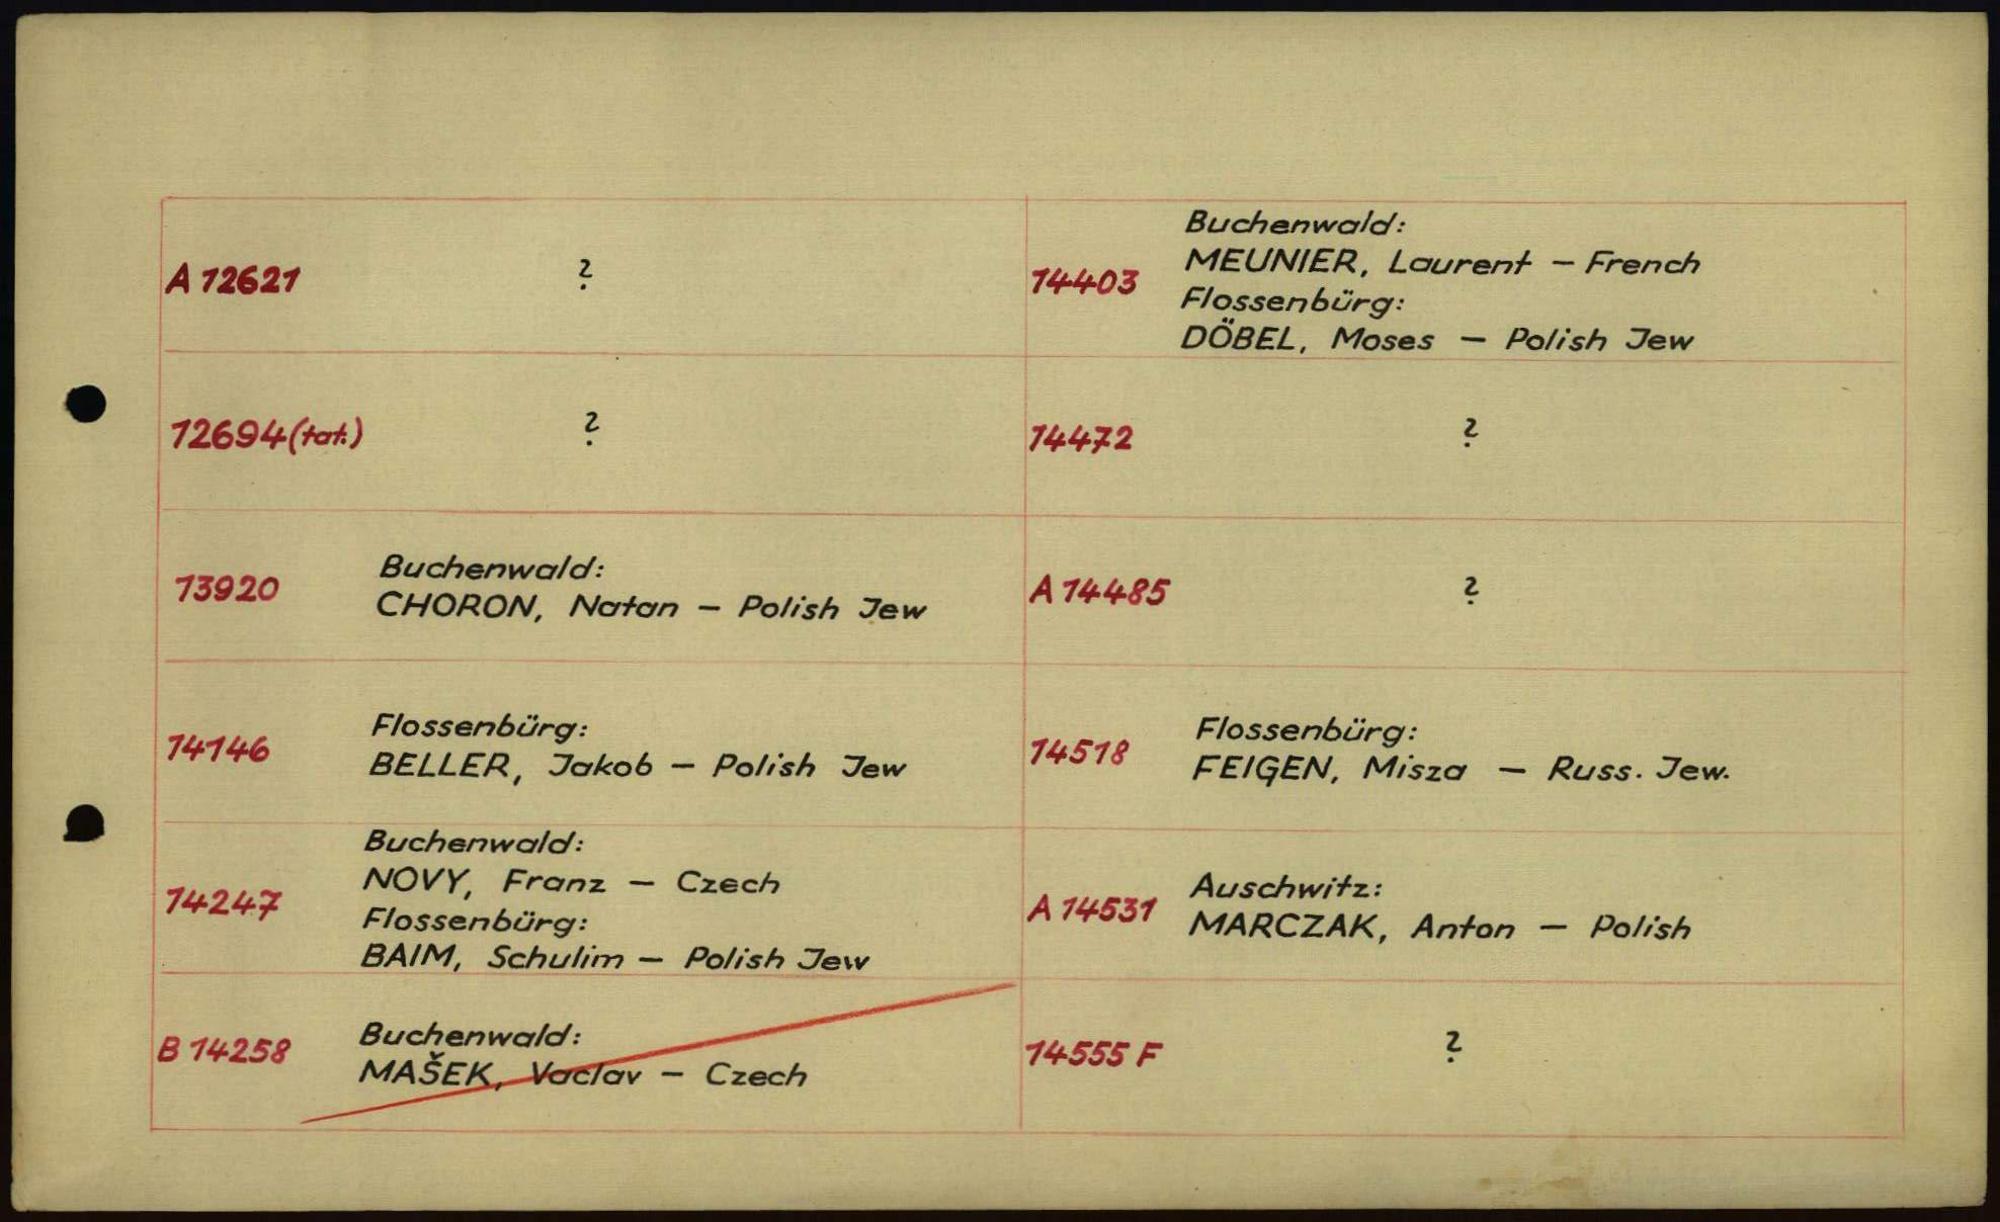 A 12621 ?
12694 (tat.) ?
13920
Buchenwald:
CHORON, Natan – Polish Jew
14146
Flossenbürg:
BELLER, Jakob – Polish Jew
14247
Buchenwald:
NOVY, Franz – Czech
Flossenbürg:
BAIM, Schulim – Polish Jew
B 14258
Buchenwald:
MAŠEK, Vaclav – Czech
14403
Buchenwald:
MEUNIER, Laurent – French
Flossenbürg:
DÖBEL, Moses – Polish Jew
14472 ?
A 14485 ?
14518
Flossenbürg:
FEIGEN, Misza – Russ. Jew.
A 14531
Auschwitz:
MARCZAK, Anton – Polish
14555 F ?